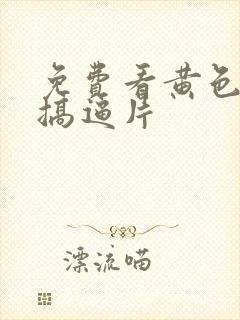 免費看黄色
搞逼片
漂流喵